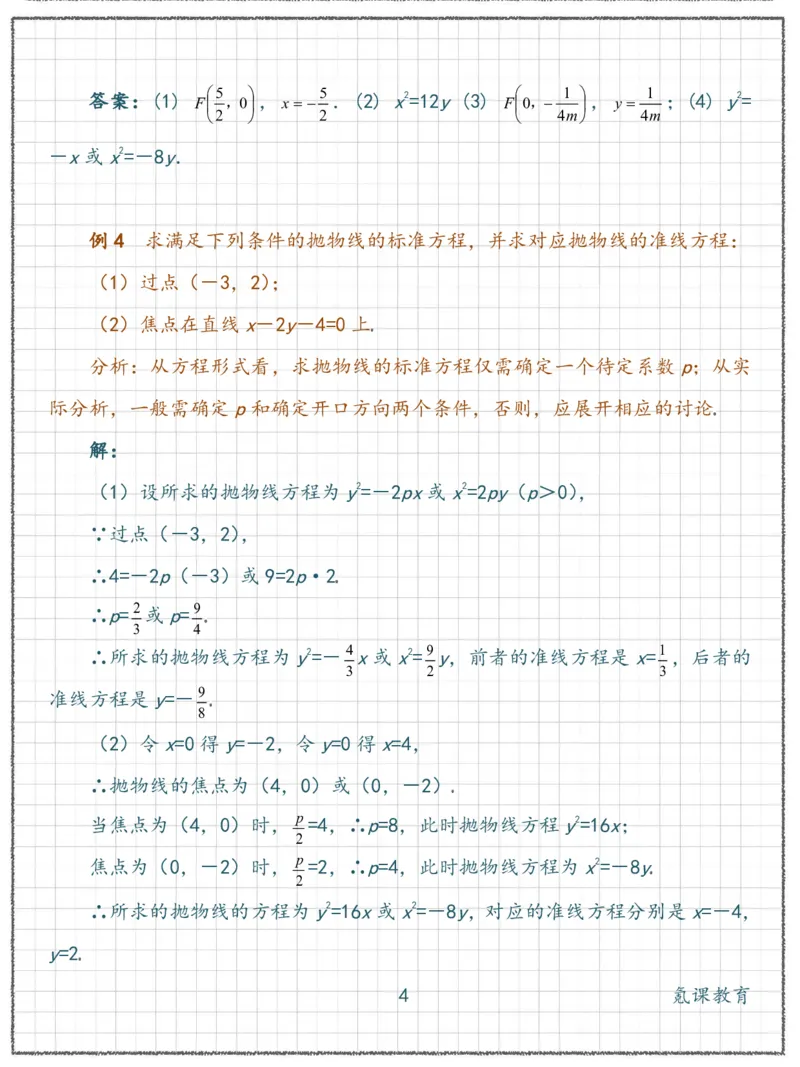 答案：(1) F(5/2，0)，x=－5/2．(2) x²=12y (3) F(0，－1/4m)，y=1/4m；(4) y²=
－x 或 x²=－8y．
例 4 求满足下列条件的抛物线的标准方程，并求对应抛物线的准线方程：
（1）过点（－3，2）；
（2）焦点在直线 x－2y－4=0 上．
分析：从方程形式看，求抛物线的标准方程仅需确定一个待定系数 p；从实
际分析，一般需确定 p 和确定开口方向两个条件，否则，应展开相应的讨论．
解：
（1）设所求的抛物线方程为 y²=－2px 或 x²=2py（p＞0），
∵过点（－3，2），
∴4=－2p（－3）或 9=2p·2．
∴p=2/3 或 p=9/4．
∴所求的抛物线方程为 y²=－4/3x 或 x²=9/2y，前者的准线方程是 x=1/3，后者的
准线方程是 y=－9/8．
（2）令 x=0 得 y=－2，令 y=0 得 x=4，
∴抛物线的焦点为（4，0）或（0，－2）．
当焦点为（4，0）时，p/2=4，∴p=8，此时抛物线方程 y²=16x；
焦点为（0，－2）时，p/2=2，∴p=4，此时抛物线方程为 x²=－8y．
∴所求的抛物线的方程为 y²=16x 或 x²=－8y，对应的准线方程分别是 x=－4，
y=2．
4 氪课教育